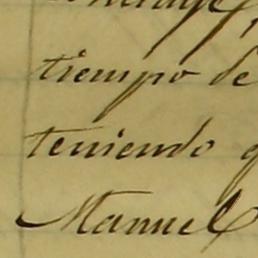 tiempo de
teniendo
Manuel